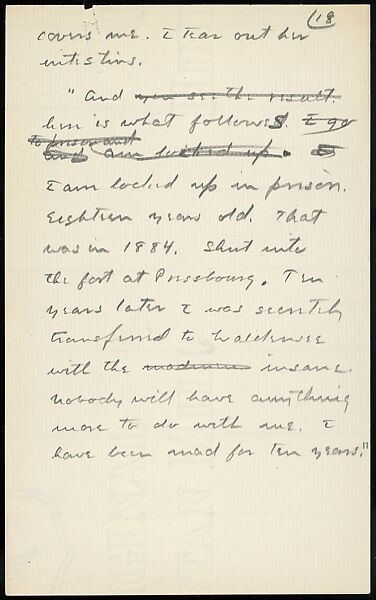 18
covers me. I tear out her
intestins.
"And you see the result.
here is what follows. I go
to prison and
and am locked up.
I am locked up in prison.
Eighteen years old. That
was in 1884. Shut into
the fort at Pressbourg. Ten
years later I was secretly
transferred to Waldensee
with the madmen insane.
Nobody will have anything
more to do with me. I
have been mad for ten years."